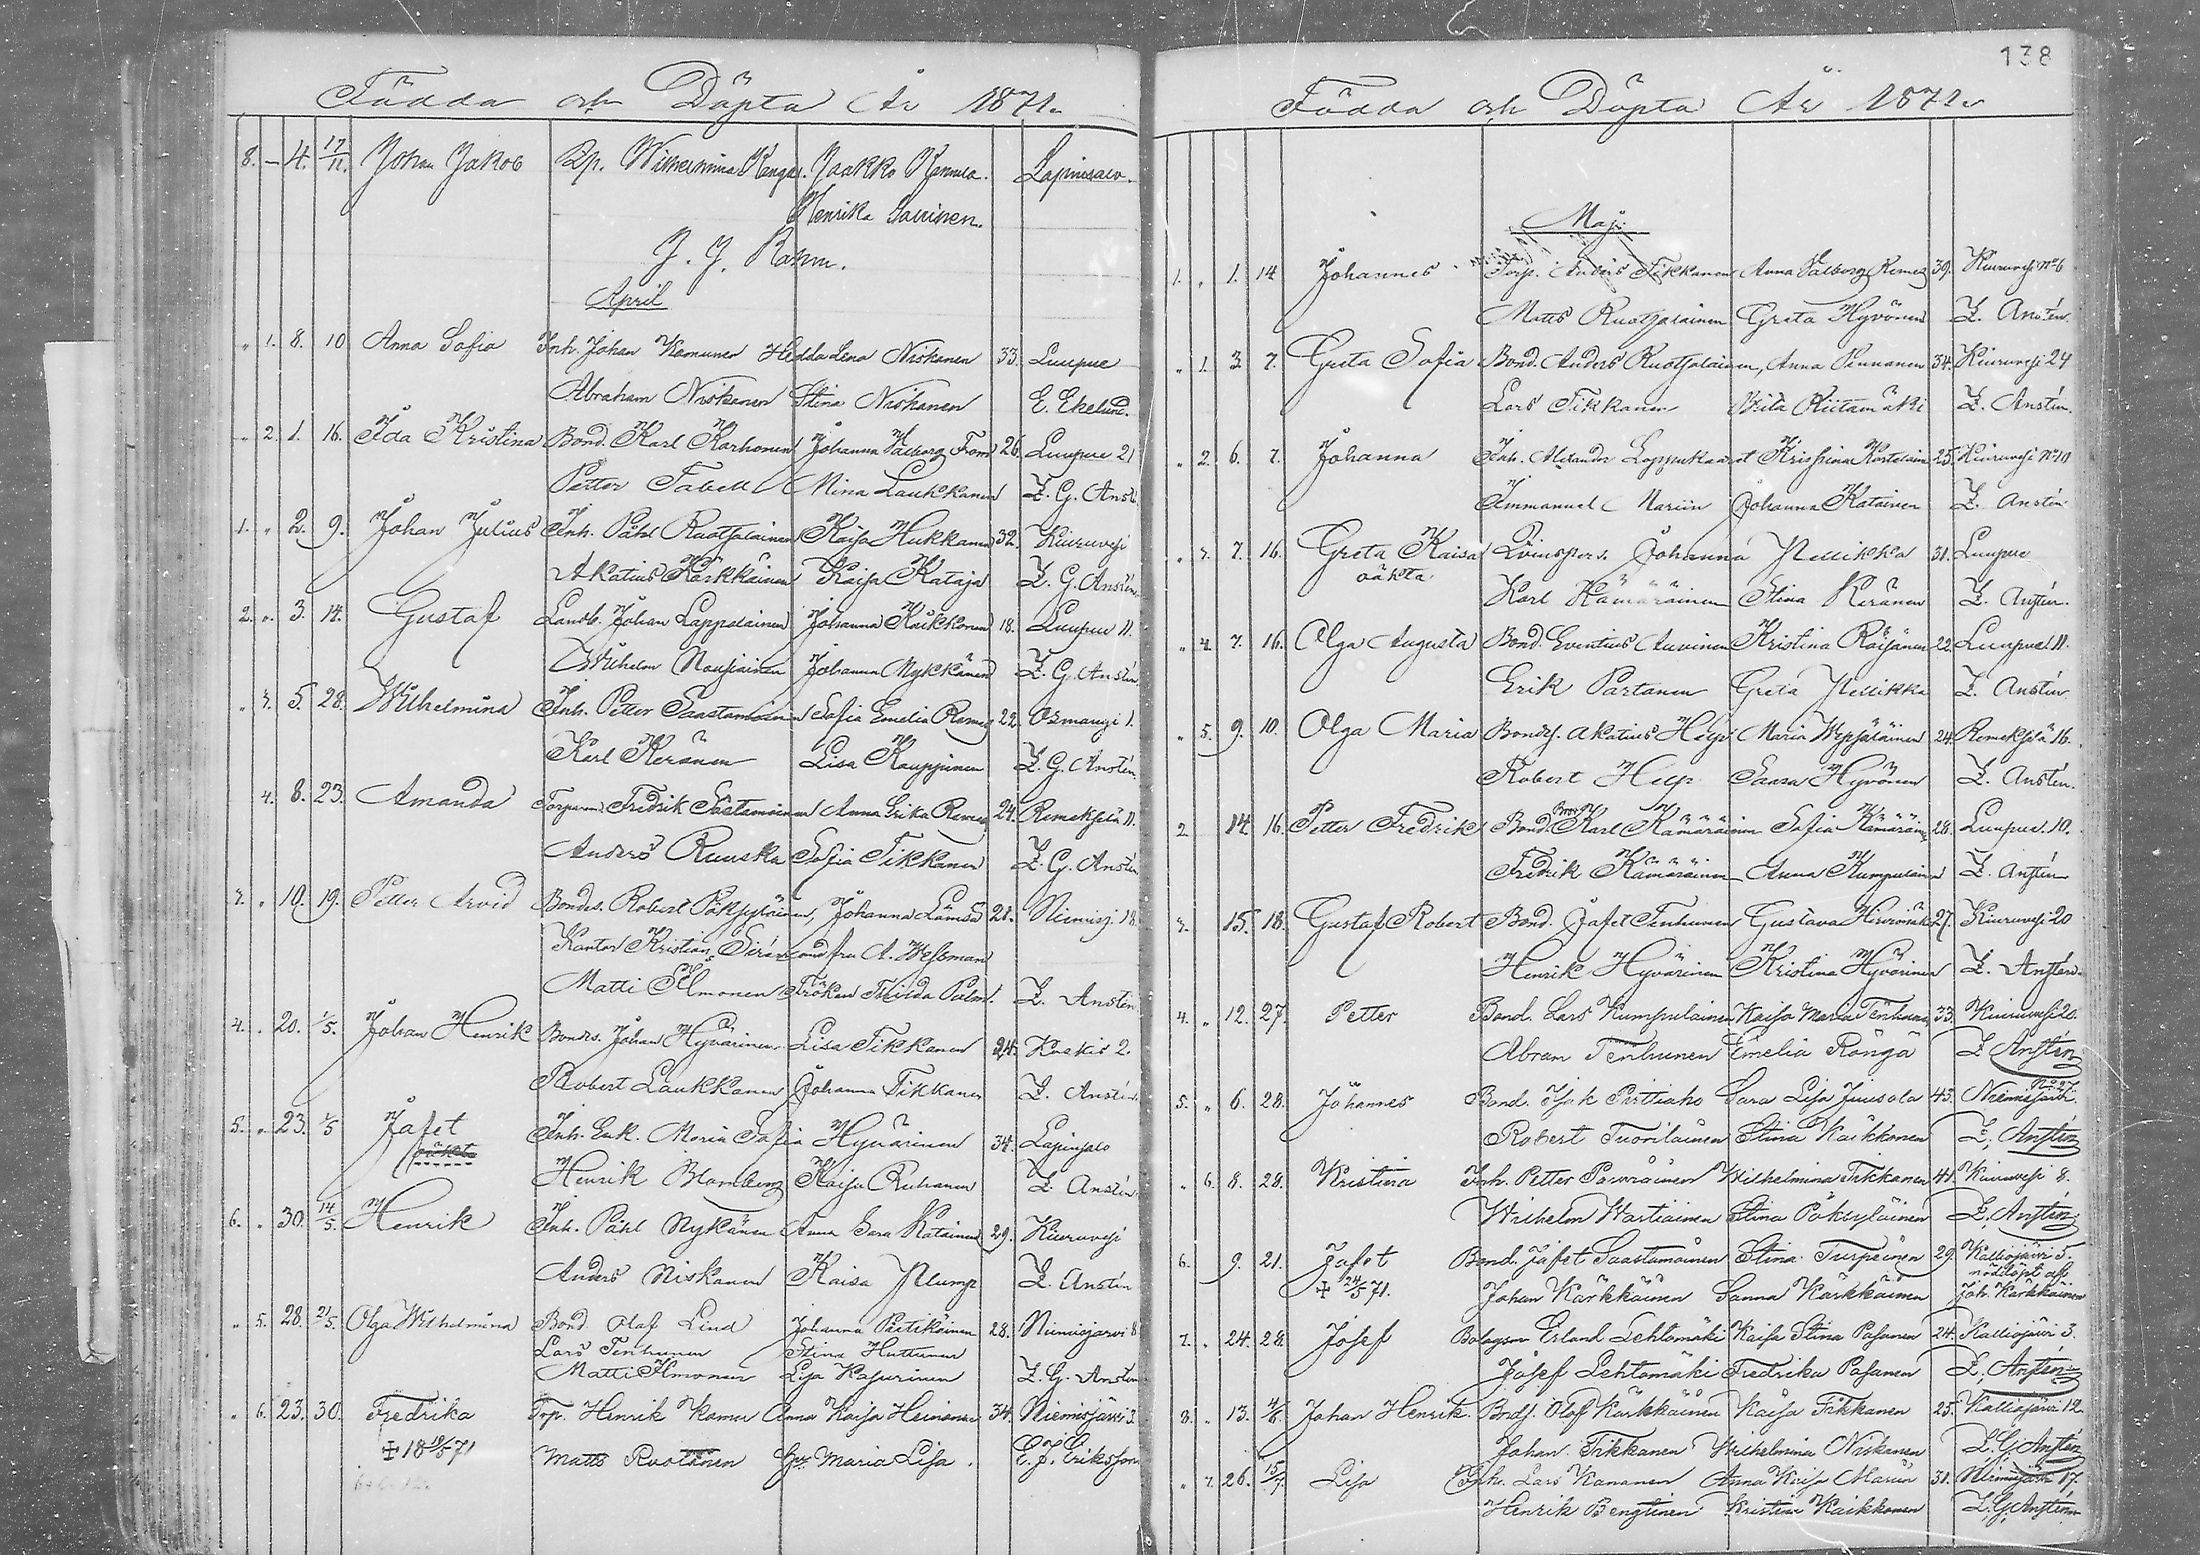 Födda och Döpta År 1871.
8. – 4. 17/11. Johan Jakob Bp. Wilhelmina Kangas. Jaakko Rannila. Lapinsalo.
Henrika Savinen.
J. J. Rahm.
April
„ 1. 8. 10 Anna Sofia Inh. Johan Komunen Hedda Lena Niskanen 33. Luupue
Abraham Niskanen Stina Niskanen E. Ekelund.
„ 2. 1. 16. Ida Kristina Bond. Karl Korhonen Johanna Valborg From 26. Luupue 21
Petter Tabell Mina Laukkanen Z. G. Anst.
1. „ 2. 9. Johan Julius Inh. Påhl Ruotsalainen Kaisa Hukkanen 32. Kiuruvesi
Akatius Kärkkäinen Kaisa Kataja Z. G. Anstén.
2. „ 3. 14. Gustaf Landb. Johan Lappalainen Johanna Kaikkonen 18. Luupue 11.
Wilhelm Nousiainen Johanna Mykkänen Z. G. Anstén
„ 3. 5. 28. Wilhelmina Inh. Petter Saastamoinen Sofia Emelia Remes 22. Osmangi 1.
Karl Keränen Lisa Kauppinen Z. G. Anstén.
4. 8. 23. Amanda Torparen Fredrik Saastamoinen Anna Erika Remes 24. Remeksela 11.
Anders Ruuska Sofia Tikkanen Z. G. Anstén
3. „ 10. 19. Petter Arvid Bondes. Robert Pöksyläinen, Johanna Lämsä 21. Niemisj. 18.
Kantor Kristian Sirén and fru A. Wessman
Matti Ilmonen Fröken Palm. Z. Anstén
4. „ 20. 1/5. Johan Henrik Bonds. Johan Hyvärinen Lisa Tikkanen 24. Koskis 2.
Robert Laukkanen Johanna Tikkanen Z. Anstén
5. „ 23. 1/5 Jafet Inh. Enk. Maria Sofia Hyvärinen 34. Lapinsalo
oäkta
Henrik Blomberg Kaisa Ruhanen Z. Anstén
6. „ 30. 14/5. Henrik Inh. Påhl Nykänen Anna Sara Katainen 29. Kiuruvesi
Anders Niskanen Kaisa Plump Z. Anstén
„ 5. 28. 21/5. Olga Wilhelmina Bond Olaf Lind Johanna Partikäinen 28. Niemisjärvi 8
Lars Tenhunen Stina Huttunen
Matti Ilmonen Lisa Kasurinen Z. G. Anstén
„ 6. 23. 30. Fredrika Trp. Henrik Komu Anna Kaisa Heinonen 34. Niemisjärvi 3.
✝ 18 19/5 71 Matts Ruotanen Gz. Maria Lisa. E. J. Eriksson
138
Födda och Döpta År 1871.
Maji
1. „ 1. 14 Johannes Torp. Anders Tikkanen Anna Valborg Remes 39. Kiuruvesi No 6
Matts Ruotsalainen Greta Hyvönen Z. Anstén.
„ 1. 3. 7. Greta Sofia Bond. Anders Ruotsalainen, Anna Pennanen 34. Kiuruvesi 24
Lars Tikkanen Brita Riitamäki Z. Anstén.
„ 2. 6. 7. Johanna Inh. Alexander Loppukaarat Kristina Kastelain 25. Kiuruvesi No 10
Immanuel Mariin Johanna Katainen Z. Anstén
„ 3. 7. 16. Greta Kaisa Qvinspers. Johanna Pellikka 31. Luupue
oäkta
Karl Kämäräinen Stina Keränen Z. Anstén.
„ 4. 7. 16. Olga Augusta Bond. Eventius Auvinen Kristina Röijänen 22. Luupue 11.
Erik Partanen Greta Pellikka Z. Anstén.
„ 5. 9. 10. Olga Maria Bonds. Akatius Help Maria Wepsäläinen 24. Remekselä 16.
Robert Help Saara Hyvönen Z. Anstén.
2. 14. 16. Petter Fredrik Bond. Bror Karl Kämäräinen Sofia Kämäräin. 28. Luupue. 10.
Fredrik Kämäräinen Anna Kumpulainen Z. Anstén
3. 15. 18. Gustaf Robert Bond. Jafet Tenhunen Gustava 27. Kiuruvesi 20
Henrik Hyvärinen Kristina Hyvärinen Z. Anstén
4. „ 12. 27. Petter Bond. Lars Kumpulainen Kaisa Maria Tenhunen 33. Kiuruvesi 20.
Abram Tenhunen Emelia Röngä Z. Anstén
5. „ 6. 28. Johannes Bond. Isak Parttiaho Sara Lisa Juusola 43. Niemisjärvi No 27.
Robert Tuorilainen Stina Kaikkonen Z. Anstén
„ 6. 8. 28. Kristina Inh. Petter Pourainen Wilhelmina Tikkanen 41. Kiuruvesi 8.
Wilhelm Wartiainen Stina Pöksyläinen Z. Anstén
6. 9. 21. Jafet Bond. Jafet Saastamoinen Stina Turpeinen 29. Kalliojärvi 5.
✝ 24/5 71. nöddöpt af
Johan Kärkkäinen Sanna Kärkkäinen Joh. Kärkkäinen
7. „ 24. 28. Josef Bolagsm Erland Lehtomäki Kaisa Stina Pasanen 24. Kalliojärvi 3.
Josef Lehtomäki Fredrika Pasanen Z. Anstén
8. „ 13. 4/6. Johan Henrik. Bonds. Olof Kärkkäinen Kaisa Tikkanen 25. Kalliojärvi 12.
Johan Tikkanen Wilhelmina Niskanen Z. G. Anstén
„ 7. 26. 15/7. Lisa Inh. Lars Kananen Anna Kaisa Mariin 31. Niemisjärvi 17.
Henrik Bengtinen Kristina Kaikkonen Z. G. Anstén